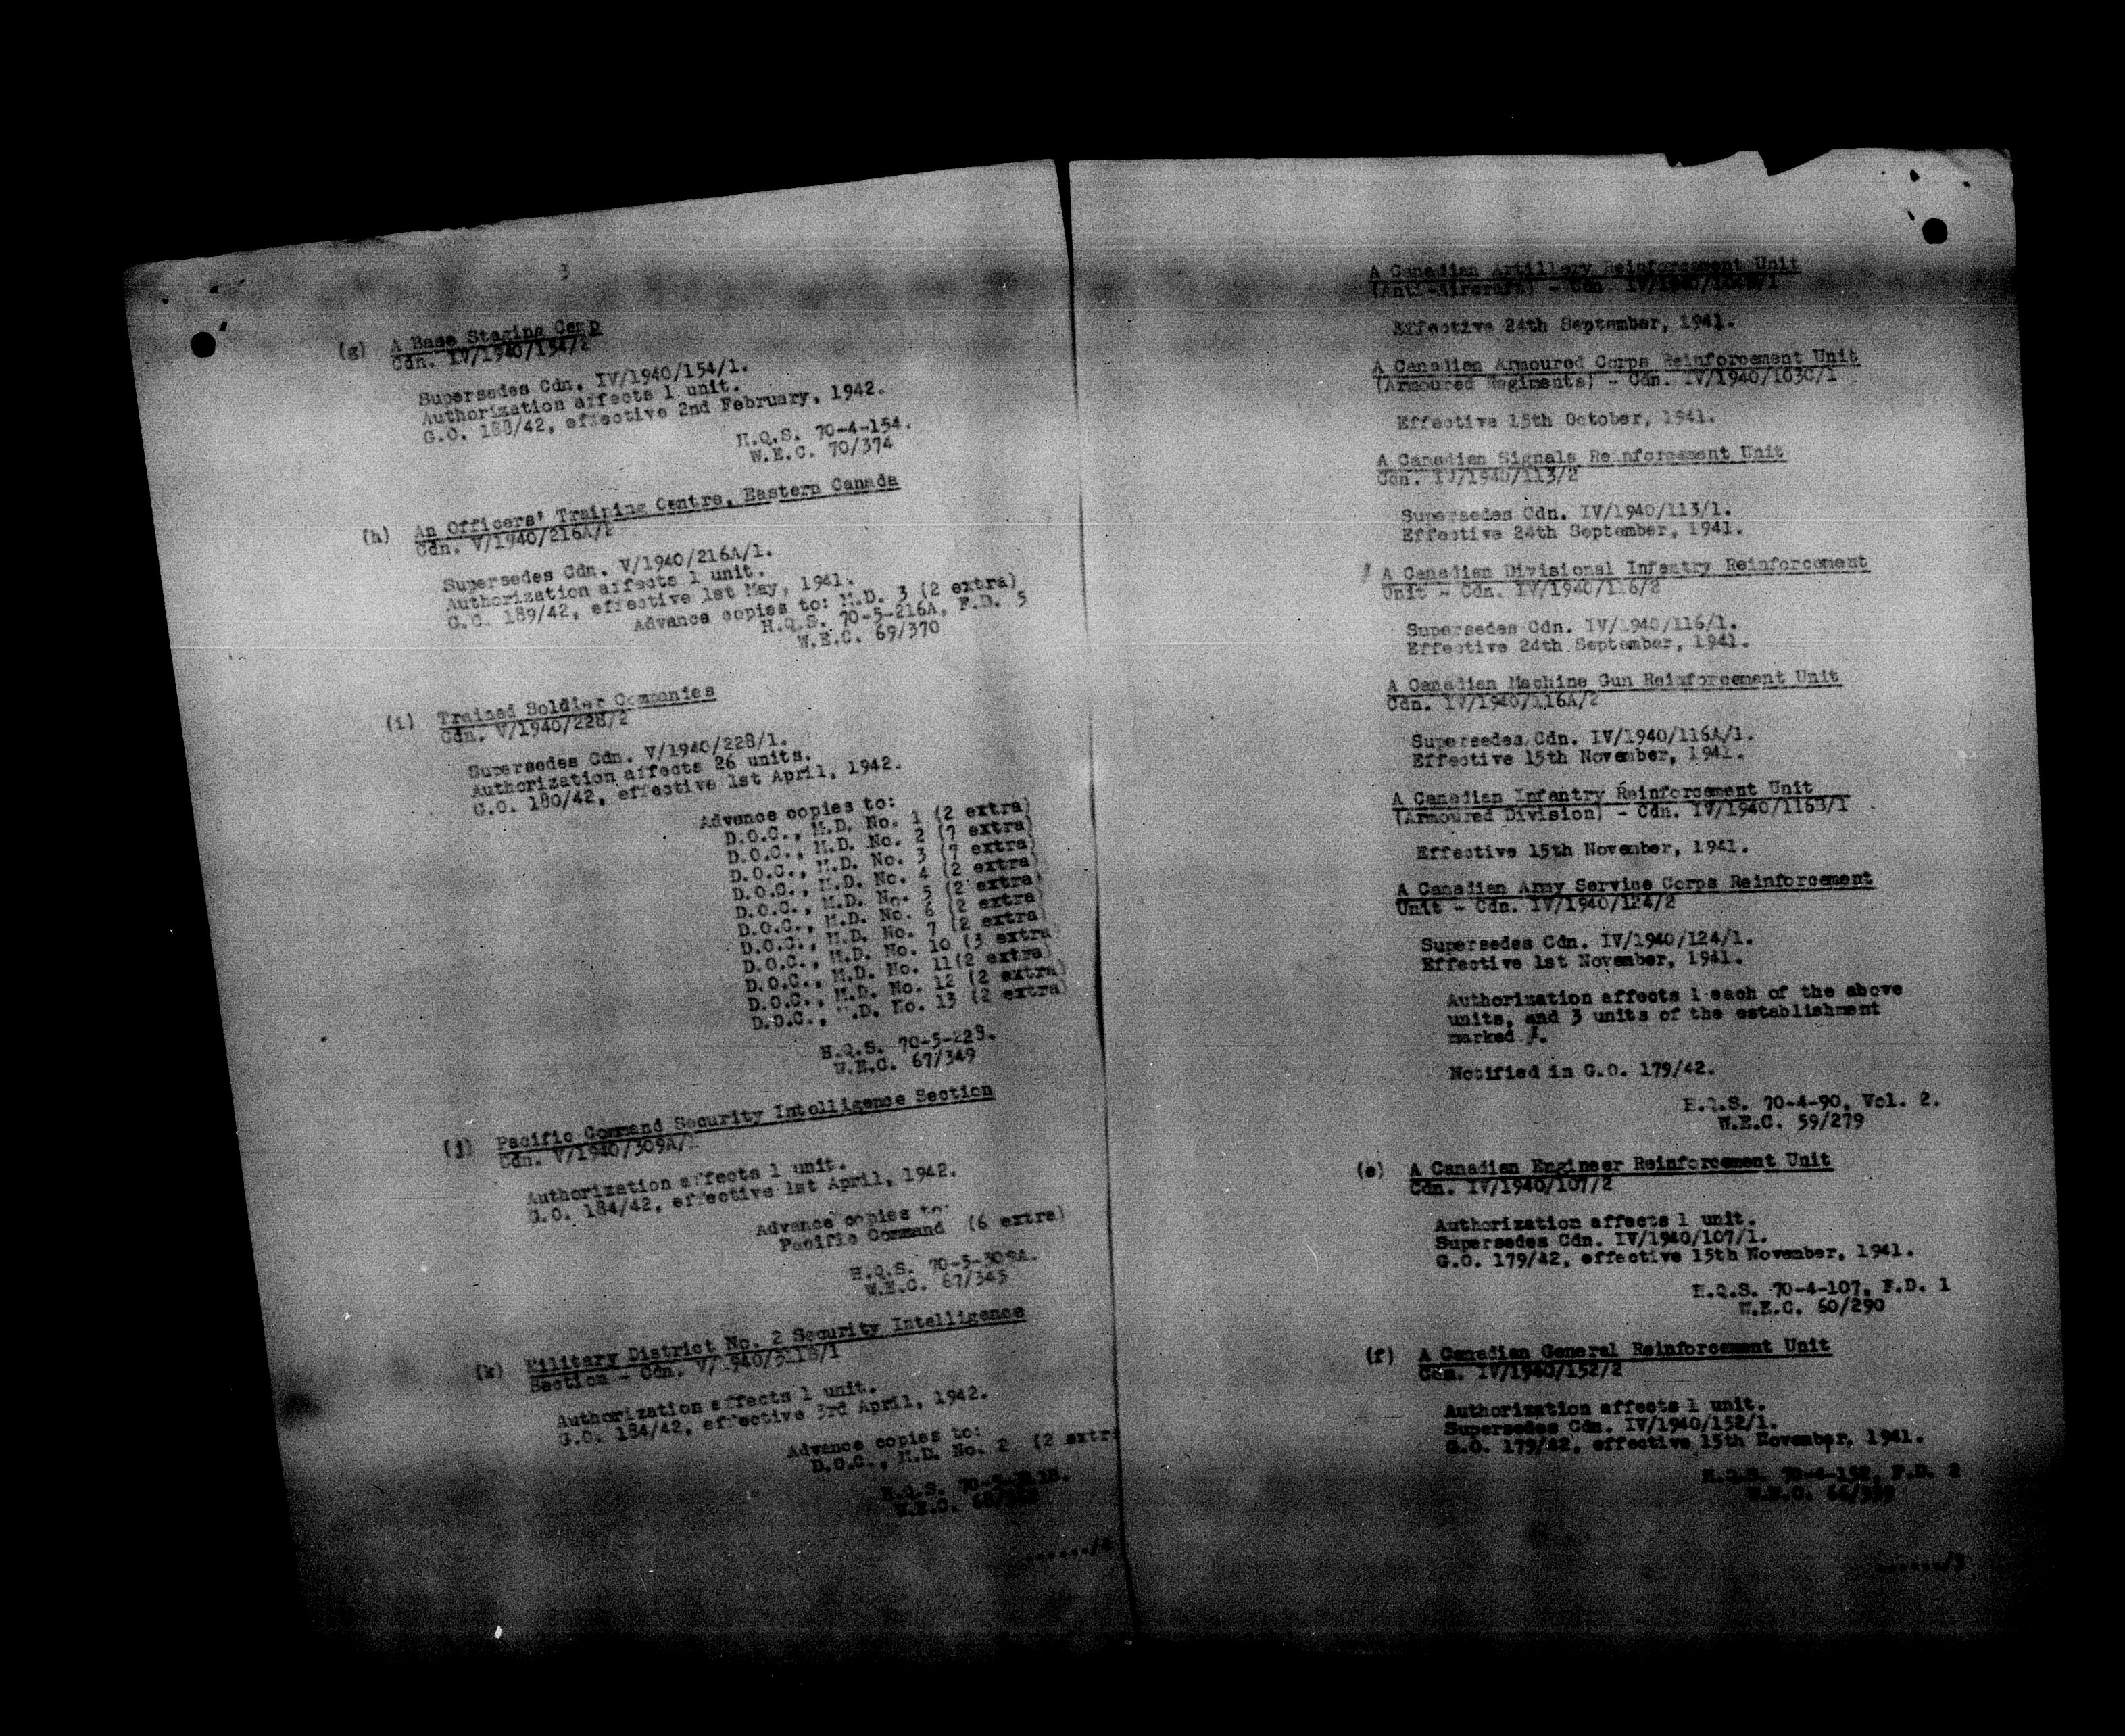 3
(g) A Base Staging Camp
Cdn. IV/1940/154/2
Supersedes Cdn. IV/1940/154/1.
Authorization affects 1 unit.
G.O. 188/42, effective 2nd February, 1942.
H.Q.S. 70-4-154.
W.E.C. 70/374
(h) An Officers' Training Centre, Eastern Canada
Cdn. V/1940/216A/2
Supersedes Cdn. V/1940/216A/1.
Authorization affects 1 unit.
G.O. 189/42, effective 1st May, 1941.
Advance copies to: M.D. 3 (2 extra)
H.Q.S. 70-5-216A, F.D. 5
W.E.C. 69/370
(i) Trained Soldier Companies
Cdn. V/1940/228/2
Supersedes Cdn. V/1940/228/1.
Authorization affects 26 units.
G.O. 180/42, effective 1st April, 1942.
Advance copies to:
D.O.C., M.D. No. 1 (2 extra)
D.O.C., M.D. No. 2 (7 extra)
D.O.C., M.D. No. 3 (7 extra)
D.O.C., M.D. No. 4 (2 extra)
D.O.C., M.D. No. 5 (2 extra)
D.O.C., M.D. No. 6 (2 extra)
D.O.C., M.D. No. 7 (2 extra)
D.O.C., M.D. No. 10 (3 extra)
D.O.C., M.D. No. 11(2 extra)
D.O.C., M.D. No. 12 (2 extra)
D.O.C., M.D. No. 13 (2 extra)
H.Q.S. 70-5-228.
W.E.C. 67/349
(j) Pacific Command Security Intelligence Section
Cdn. V/1940/309A/
Authorization affects 1 unit.
G.O. 184/42, effective 1st April, 1942.
Advance copies to:
Pacific Command (6 extra)
H.Q.S. 70-5-309A.
W.E.C. 67/345
(k) Military District No. 2 Security Intelligence
Section - Cdn. V/1940/311B/1
Authorization affects 1 unit.
G.O. 184/42, effective 3rd April, 1942.
Advance copies to:
D.O.C., M.D. No. 2 (2 extra
H.Q.S.
W.E.C.
....../4
A Canadian Artillery Reinforcement Unit
(Anti-Aircraft) - Cdn.
Effective 24th September, 1941.
A Canadian Armoured Corps Reinforcement Unit
(Armoured Regiments) - Cdn. IV/1940/103C/1
Effective 15th October, 1941.
A Canadian Signals Reinforcement Unit
Cdn. IV/1940/113/2
Supersedes Cdn. IV/1940/113/1.
Effective 24th September, 1941.
A Canadian Divisional Infantry Reinforcement
Unit - Cdn. IV/1940/116/2
Supersedes Cdn. IV/1940/116/1.
Effective 24th September, 1941.
A Canadian Machine Gun Reinforcement Unit
Cdn. IV/1940/116A/2
Supersedes Cdn. IV/1940/116A/1.
Effective 15th November, 1941.
A Canadian Infantry Reinforcement Unit
(Armoured Division) - Cdn. IV/1940/116B/1
Effective 15th November, 1941.
A Canadian Army Service Corps Reinforcement
Unit - Cdn. IV/1940/124/2
Supersedes Cdn. IV/1940/124/1.
Effective 1st November, 1941.
Authorization affects 1 each of the above
units, and 3 units of the establishment
marked
Notified in G.O. 179/42.
H.Q.S. 70-4-90, Vol. 2.
W.E.C. 59/279
(e) A Canadian Engineer Reinforcement Unit
Cdn. IV/1940/107/2
Authorization affects 1 unit.
Supersedes Cdn. IV/1940/107/1.
G.O. 179/42, effective 15th November, 1941.
H.Q.S. 70-4-107, F.D. 1
W.E.C. 60/290
(f) A Canadian General Reinforcement Unit
Cdn. IV/1940/152/2
Authorization affects 1 unit.
Supersedes Cdn. IV/1940/152/1.
G.O. 179/42, effective 15th November, 1941.
H.Q.S. 70-4-152, F.D. 2
W.E.C.
....../3